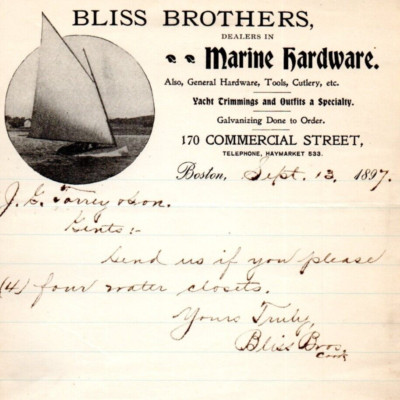 BLISS BROTHERS,
DEALERS IN
Marine Hardware.
Also, General Hardware, Tools, Cutlery, etc.
Yacht Trimmings and Outfits a Specialty.
Galvanizing Done to Order.
170 COMMERCIAL STREET,
TELEPHONE, HAYMARKET 533.
Boston, Sept. 13, 1897.
J. E. Torrey &son.
Gents:-
Send us if you please
(4) four water closets.
Yours Truly,
Bliss Bros.
Cook